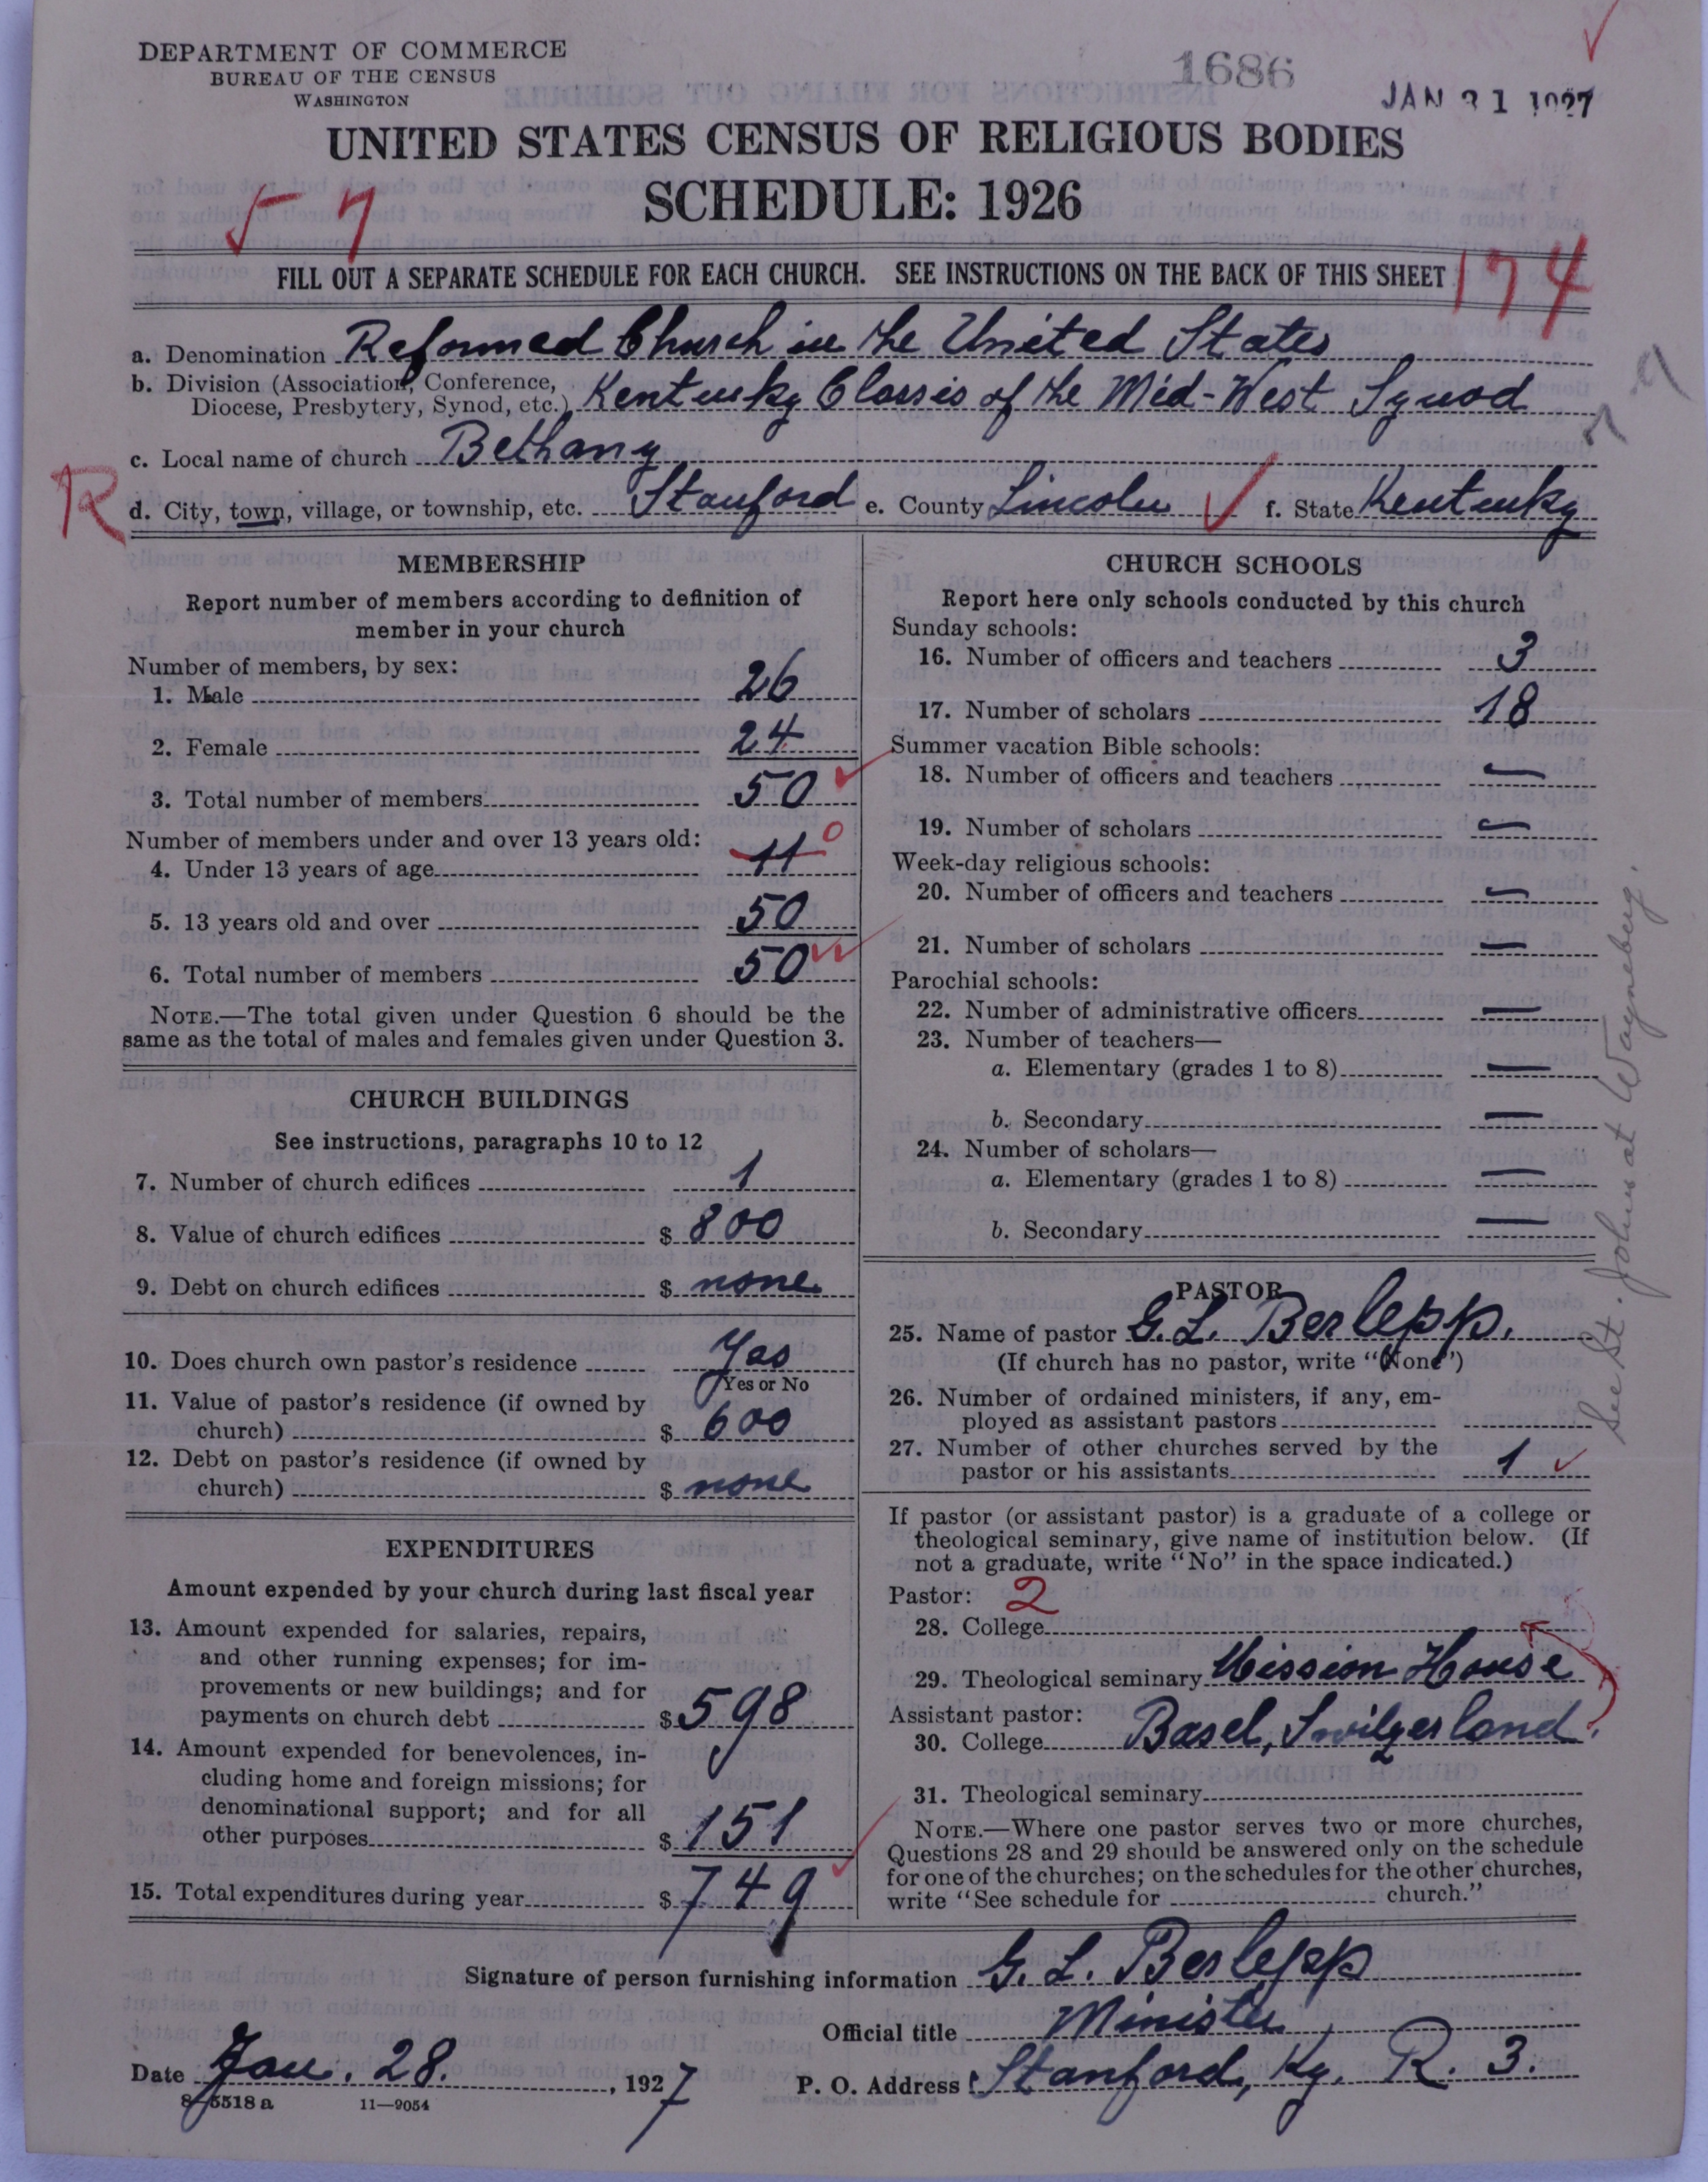 DEPARTMENT OF COMMERCE
BUREAU OF THE CENSUS
WASHINGTON
1686
JAN 31 1927
UNITED STATES CENSUS OF RELIGIOUS BODIES
SCHEDULE: 1926
174
FILL OUT A SEPARATE SCHEDULE FOR EACH CHURCH. SEE INSTRUCTIONS ON THE BACK OF THIS SHEET
a. Denomination Reformed Church in the United States
b. Division (Association, Conference, Diocese, Presbytery, Synod, etc.) Kentucky Classis of the Mid-West Synod
c. Local name of church Bethany
R
d. City, town, village, or township, etc. Stanford e. County Lincoln f. State Kentucky
MEMBERSHIP
Report number of members according to definition of
member in your church
Number of members, by sex:
1. Male 26
2. Female 24
3. Total number of members 50
Number of members under and over 13 years old:
4. Under 13 years of age 11 0
5. 13 years old and over 50
6. Total number of members 50
NOTE.—The total given under Question 6 should be the
same as the total of males and females given under Question 3.
CHURCH BUILDINGS
See instructions, paragraphs 10 to 12
7. Number of church edifices 1
8. Value of church edifices $ 800
9. Debt on church edifices $ none
10. Does church own pastor's residence Yes
Yes or No
11. Value of pastor's residence (if owned by
church) $ 600
12. Debt on pastor's residence (if owned by
church) $ none
EXPENDITURES
Amount expended by your church during last fiscal year
13. Amount expended for salaries, repairs,
and other running expenses; for im-
provements or new buildings; and for
payments on church debt $ 598
14. Amount expended for benevolences, in-
cluding home and foreign missions; for
denominational support; and for all
other purposes $ 151
15. Total expenditures during year $ 749
CHURCH SCHOOLS
Report here only schools conducted by this church
Sunday schools:
16. Number of officers and teachers 3
17. Number of scholars 18
Summer vacation Bible schools:
18. Number of officers and teachers —
19. Number of scholars —
Week-day religious schools:
20. Number of officers and teachers —
21. Number of scholars —
Parochial schools:
22. Number of administrative officers —
23. Number of teachers—
a. Elementary (grades 1 to 8) —
b. Secondary —
24. Number of scholars—
a. Elementary (grades 1 to 8) —
b. Secondary —
PASTOR
25. Name of pastor G. L. Berlepp.
(If church has no pastor, write "None")
26. Number of ordained ministers, if any, em-
ployed as assistant pastors
27. Number of other churches served by the
pastor or his assistants 1
If pastor (or assistant pastor) is a graduate of a college or
theological seminary, give name of institution below. (If
not a graduate, write "No" in the space indicated.)
Pastor: 2
28. College
29. Theological seminary Mission House
Assistant pastor:
30. College Basel, Switzerland.
31. Theological seminary
NOTE.—Where one pastor serves two or more churches,
Questions 28 and 29 should be answered only on the schedule
for one of the churches; on the schedules for the other churches,
write "See schedule for church."
See St. Johns at Wayneburg.
Signature of person furnishing information G. L. Berlepp
Official title Minister
Date Jan. 28., 1927 P. O. Address Stanford, Ky. R. 3.
8-5518 a 11—9054